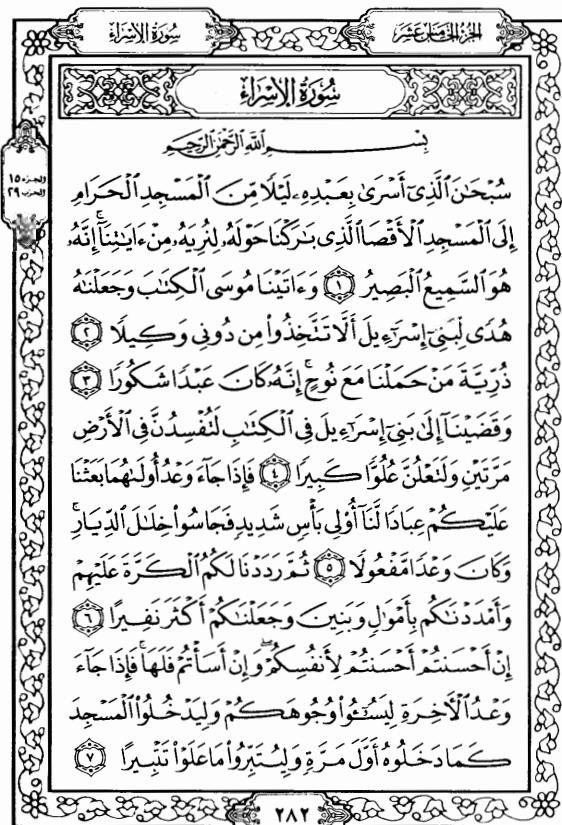 سُورَةُ الإِسْرَاءِ
الجُزْءُ الخَامِسَ عَشَرَ
سُورَةُ الإِسْرَاءِ
بِسْمِ ٱللَّهِ ٱلرَّحْمَٰنِ ٱلرَّحِيمِ
الجزء ١٥
الحزب ٢٩
سُبْحَٰنَ ٱلَّذِىٓ أَسْرَىٰ بِعَبْدِهِۦ لَيْلًا مِّنَ ٱلْمَسْجِدِ ٱلْحَرَامِ
إِلَى ٱلْمَسْجِدِ ٱلْأَقْصَا ٱلَّذِى بَٰرَكْنَا حَوْلَهُۥ لِنُرِيَهُۥ مِنْ ءَايَٰتِنَآ ۚ إِنَّهُۥ
هُوَ ٱلسَّمِيعُ ٱلْبَصِيرُ ١ وَءَاتَيْنَا مُوسَى ٱلْكِتَٰبَ وَجَعَلْنَٰهُ
هُدًى لِّبَنِىٓ إِسْرَٰٓءِيلَ أَلَّا تَتَّخِذُوا۟ مِن دُونِى وَكِيلًا ٢
ذُرِّيَّةَ مَنْ حَمَلْنَا مَعَ نُوحٍ ۚ إِنَّهُۥ كَانَ عَبْدًا شَكُورًا ٣
وَقَضَيْنَآ إِلَىٰ بَنِىٓ إِسْرَٰٓءِيلَ فِى ٱلْكِتَٰبِ لَتُفْسِدُنَّ فِى ٱلْأَرْضِ
مَرَّتَيْنِ وَلَتَعْلُنَّ عُلُوًّا كَبِيرًا ٤ فَإِذَا جَآءَ وَعْدُ أُولَىٰهُمَا بَعَثْنَا
عَلَيْكُمْ عِبَادًا لَّنَآ أُو۟لِى بَأْسٍ شَدِيدٍ فَجَاسُوا۟ خِلَٰلَ ٱلدِّيَارِ ۚ
وَكَانَ وَعْدًا مَّفْعُولًا ٥ ثُمَّ رَدَدْنَا لَكُمُ ٱلْكَرَّةَ عَلَيْهِمْ
وَأَمْدَدْنَٰكُم بِأَمْوَٰلٍ وَبَنِينَ وَجَعَلْنَٰكُمْ أَكْثَرَ نَفِيرًا ٦
إِنْ أَحْسَنتُمْ أَحْسَنتُمْ لِأَنفُسِكُمْ ۖ وَإِنْ أَسَأْتُمْ فَلَهَا ۚ فَإِذَا جَآءَ
وَعْدُ ٱلْءَاخِرَةِ لِيَسُۥٓـُٔوا۟ وُجُوهَكُمْ وَلِيَدْخُلُوا۟ ٱلْمَسْجِدَ
كَمَا دَخَلُوهُ أَوَّلَ مَرَّةٍ وَلِيُتَبِّرُوا۟ مَا عَلَوْا۟ تَتْبِيرًا ٧
٢٨٢